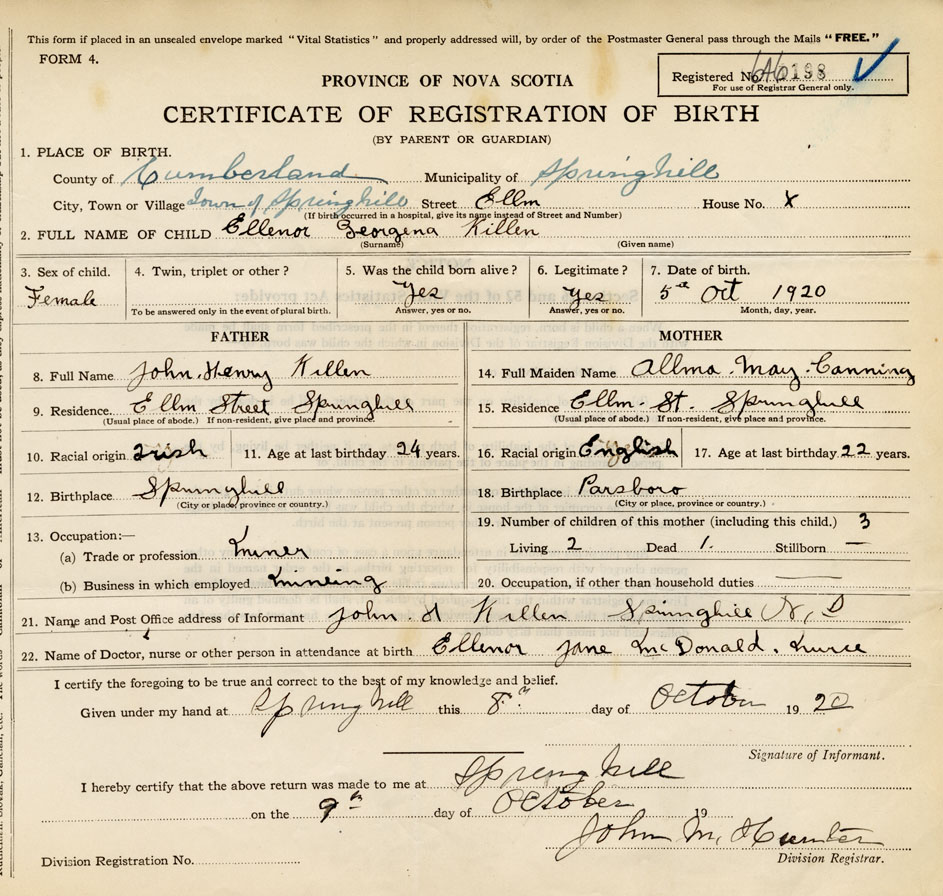 This form if placed in an unsealed envelope marked "Vital Statistics" and properly addressed will, by order of the Postmaster General pass through the Mails "FREE."
FORM 4.
Registered No. 198
For use of Registrar General only.
PROVINCE OF NOVA SCOTIA
CERTIFICATE OF REGISTRATION OF BIRTH
(BY PARENT OR GUARDIAN)
1. PLACE OF BIRTH.
County of Cumberland Municipality of Springhill
City, Town or Village Town of Springhill Street Ellm House No. x
(If birth occurred in a hospital, give its name instead of Street and Number)
2. FULL NAME OF CHILD Ellenor Georgena Killen
(Surname) (Given name)
3. Sex of child. 4. Twin, triplet or other? 5. Was the child born alive? 6. Legitimate? 7. Date of birth.
Female Yes Yes 5th Oct 1920
To be answered only in the event of plural birth. Answer, yes or no. Answer, yes or no. Month, day, year.
FATHER
8. Full Name John Henry Killen
9. Residence. Ellm Street Springhill
(Usual place of abode.) If non-resident, give place and province.
10. Racial origin Irish 11. Age at last birthday 24 years.
12. Birthplace Springhill
(City or place, province or country.)
13. Occupation:—
(a) Trade or profession Miner
(b) Business in which employed Mineing
MOTHER
14. Full Maiden Name Allma May Canning
15. Residence Ellm St. Springhill
(Usual place of abode.) If non-resident, give place and province.
16. Racial origin English 17. Age at last birthday 22 years.
18. Birthplace Parsboro
(City or place, province or country.)
19. Number of children of this mother (including this child.) 3
Living 2 Dead 1. Stillborn —
20. Occupation, if other than household duties —
21. Name and Post Office address of Informant John H Killen Springhill N.S
22. Name of Doctor, nurse or other person in attendance at birth Ellenor Jane McDonald. Nurse
I certify the foregoing to be true and correct to the best of my knowledge and belief.
Given under my hand at Springhill this 8th day of October 1920
Signature of Informant.
I hereby certify that the above return was made to me at Springhill
on the 9th day of October 19
John M. Hunter
Division Registration No. Division Registrar.